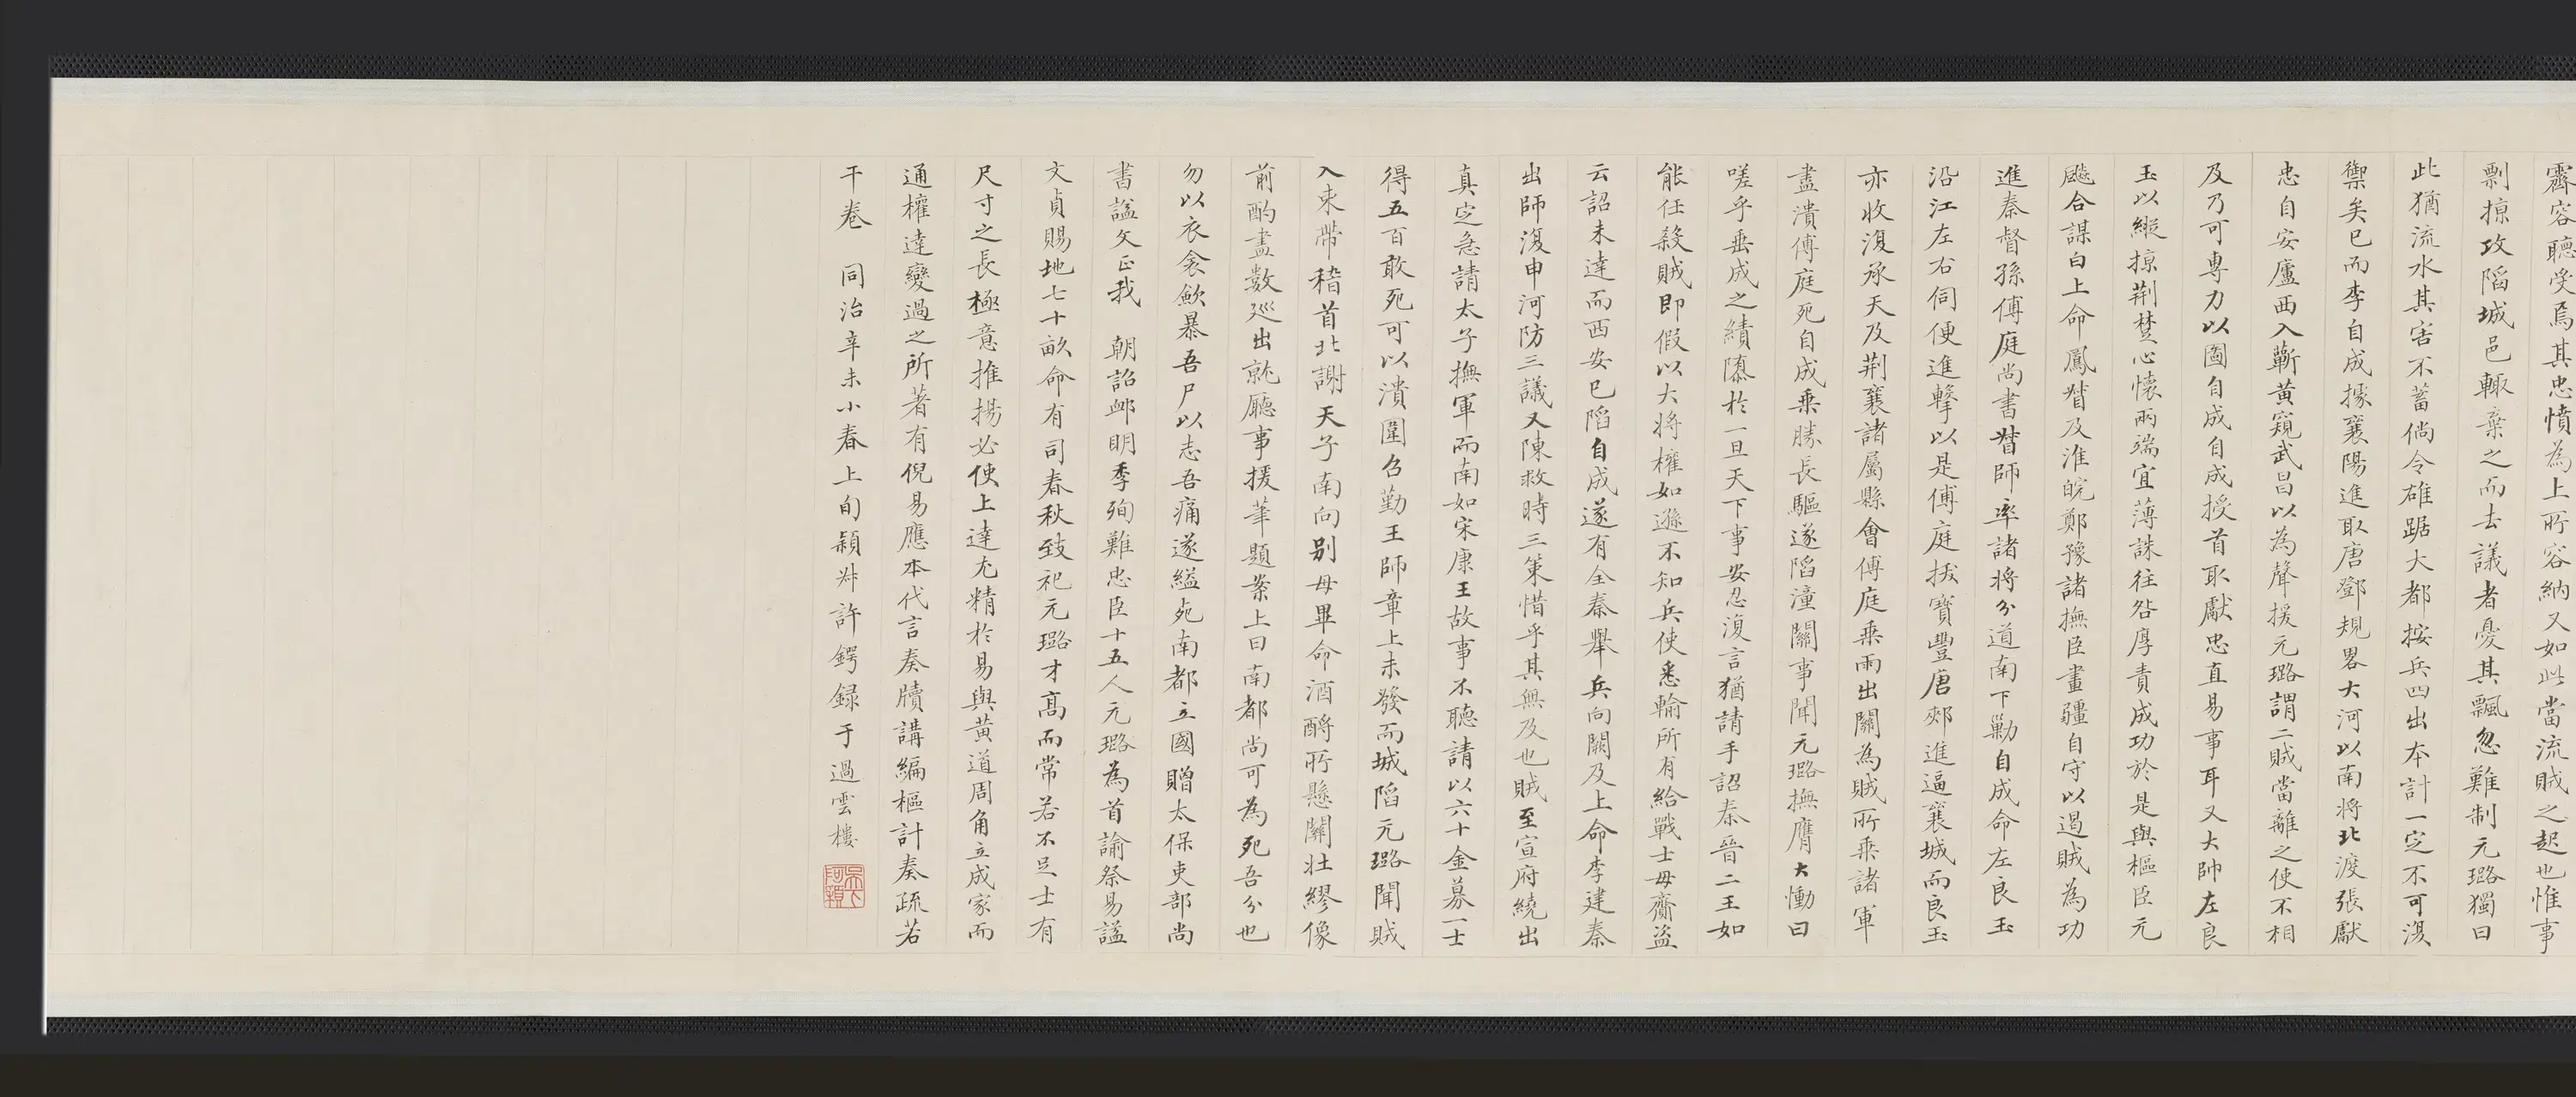 霽容聽受焉其忠憤為上所容納又如此當流賊之起也惟事
剽掠攻陷城邑輙棄之而去議者憂其飄忽難制元璐獨曰
此猶流水其害不蓄倘令雄踞大都按兵四出本計一定不可復
禦矣已而李自成據襄陽進取唐鄧規畧大河以南將北渡張獻
忠自安廬西入蘄黃窺武昌以為聲援元璐謂二賊當離之使不相
及乃可專力以圖自成自成授首取獻忠直易事耳又大帥左良
玉以縱掠荆楚心懷兩端宜薄誅往咎厚責成功於是與樞臣元
飈合謀白上命鳳督及淮皖鄭豫諸撫臣畫疆自守以遏賊為功
進秦督孫傅庭尚書督師率諸将分道南下勦自成命左良玉
沿江左右伺便進擊以是傅庭拔寶豐唐郟進逼襄城而良玉
亦收復承天及荆襄諸屬縣會傅庭乘雨出關為賊所乘諸軍
盡潰傅庭死自成乘勝長驅遂陷潼關事聞元璐撫膺大慟曰
嗟乎垂成之績隳於一旦天下事安忍復言猶請手詔秦晉二王如
能任殺賊即假以大将權如遜不知兵使悉輸所有給戰士毋齎盜
云詔未達而西安已陷自成遂有全秦舉兵向闕及上命李建泰
出師復申河防三議又陳救時三策惜乎其無及也賊至宣府繞出
真定急請太子撫軍而南如宋康王故事不聽請以六十金募一士
得五百敢死可以潰圍召勤王師章上未發而城陷元璐聞賊
入束帶稽首北謝天子南向别母畢命酒酹所懸關壯繆像
前酌盡數巡出就廳事援筆題案上曰南都尚可為死吾分也
勿以衣衾歛暴吾尸以志吾痛遂縊死南都立國贈太保吏部尚
書諡文正我 朝詔卹明季殉難忠臣十五人元璐為首諭祭易諡
文貞賜地七十畝命有司春秋致祀元璐才高而常若不足士有
尺寸之長極意推揚必使上達尤精於易與黄道周角立成家而
通權達變過之所著有倪易應本代言奏牘講編樞計奏疏若
干卷 同治辛未小春上旬頴叔許鍔録于過雲樓